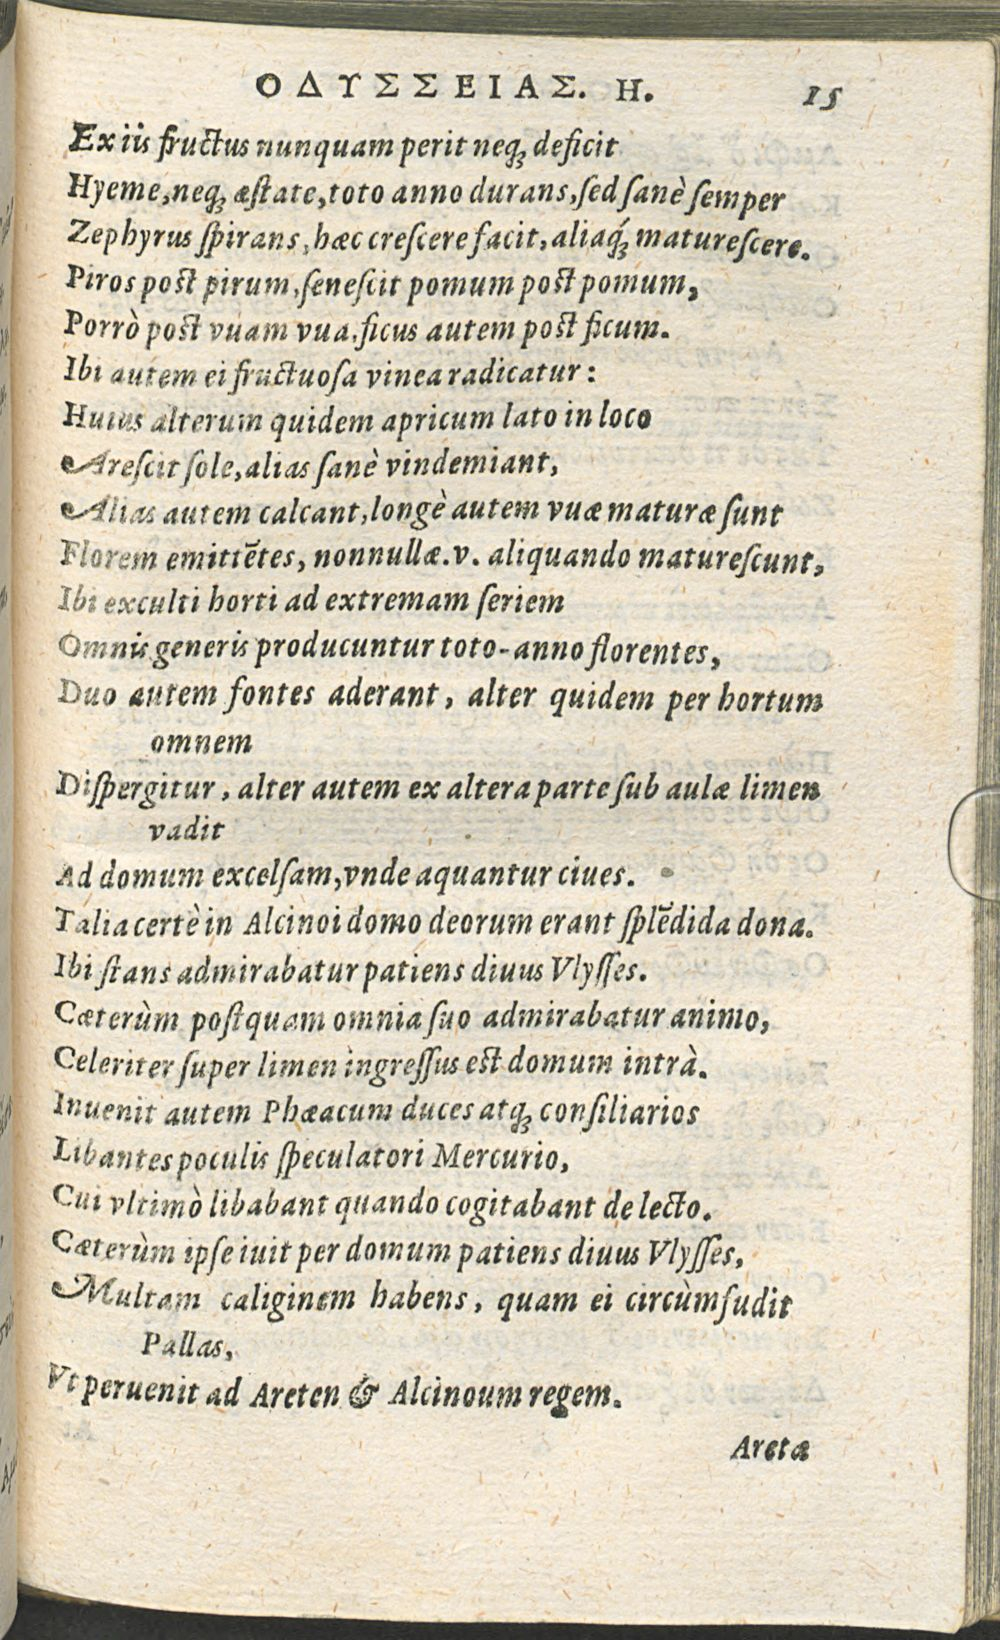 ΟΔΥΣΣΕΙΑΣ. Η. 15
Ex iis fructus nunquam perit neq; deficit
Hyeme, neq; æſtate, toto anno durans, ſed ſanè ſemper
Zephyrus ſpirans, hæc creſcere facit, aliaq́; matureſcere.
Piros poſt pirum, ſeneſcit pomum poſt pomum,
Porrò poſt vuam vua, ficus autem poſt ficum.
Ibi autem ei fructuoſa vinea radicatur:
Huius alterum quidem apricum lato in loco
Areſcit ſole, alias ſanè vindemiant,
Alias autem calcant, longè autem vuæ maturæ ſunt
Florem emittētes, nonnullæ.v. aliquando matureſcunt,
Ibi exculti horti ad extremam ſeriem
Omnis generis producuntur toto-anno florentes,
Duo autem fontes aderant, alter quidem per hortum
omnem
Diſpergitur, alter autem ex altera parte ſub aulæ limen
vadit
Ad domum excelſam, vnde aquantur ciues.
Talia certè in Alcinoi domo deorum erant ſplēdida dona.
Ibi ſtans admirabatur patiens diuus Vlyſſes.
Cæterùm poſtquam omnia ſuo admirabatur animo,
Celeriter ſuper limen ingreſſus eſt domum intrà.
Inuenit autem Phæacum duces atq; conſiliarios
Libantes poculis ſpeculatori Mercurio,
Cui vltimò libabant quando cogitabant de lecto.
Cæterùm ipſe iuit per domum patiens diuus Vlyſſes,
Multam caliginem habens, quam ei circùmfudit
Pallas,
Vt peruenit ad Areten & Alcinoum regem.
Aretæ